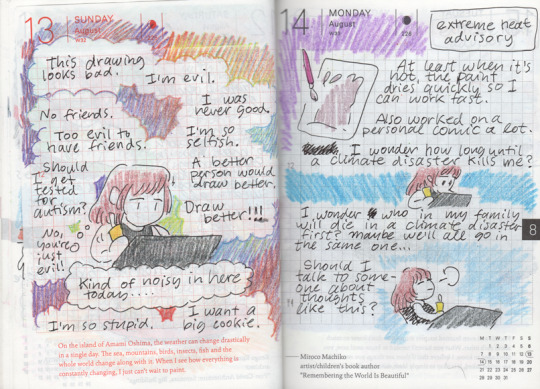 13 SUNDAY
August
WK32
225
This drawing
looks bad.
I'm evil.
I was
never good.
No friends.
Too evil to
have friends.
I'm so
selfish.
A better
person would
draw better.
Should
I get
tested
for
autism?
Draw
better!!!
No,
you're
just
evil!
Kind of noisy in here
today.....
I'm so stupid.
I want a
big cookie.
On the island of Amami Oshima, the weather can change drastically
in a single day. The sea, mountains, birds, insects, fish and the
whole world change along with it. When I see how everything is
constantly changing, I just can't wait to paint.
14 MONDAY
August
226
extreme heat
advisory
At least when it's
hot, the paint
dries quickly so I
can work fast.
Also worked on a
personal comic a lot.
I wonder how long until
a climate disaster kills me?
I wonder who in my family
will die in a climate disaster
first? Maybe we'll all go in
the same one...
8
Should I
talk to some-
one about
thoughts
like this?
Mitoco Machiko
artist/children's book author
"Remembering the World Is Beautiful"
M T W T F S S
1 2 3 4 5 6
7 8 9 10 11 12 13
14 15 16 17 18 19 20
21 22 23 24 25 26 27
28 29 30 31